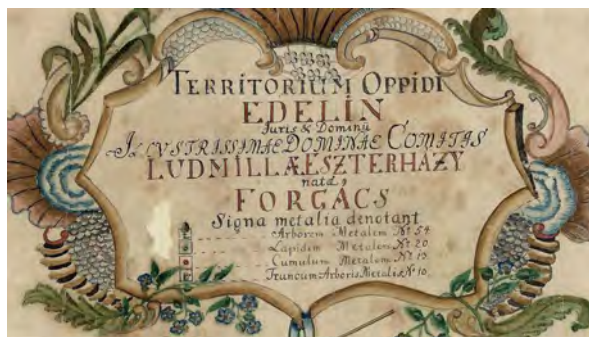 TERRITORIUM OPPIDI
EDELÍN
Juris & Dominii
ILLVSTRISSIMAE DOMINAE COMITIS
LUDMILLÆ ESZTERHAZY
natæ
FORGACS
Signa metalia denotant
Arborem Metalem Nº 54
Lapidem Metalem Nº 20
Cumulum Metalem Nº 13
Truncum Arboris Metalis Nº 10